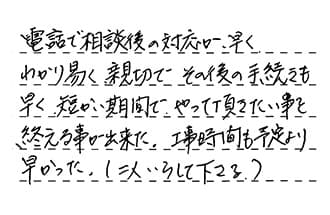 電話で相談後の対応が早く
わかり易く親切でその後の手続きも
早く短かい期間でやって頂きたい事を
終える事が出来た。工事時間も予定より
早かった。(二人いらして下さる)